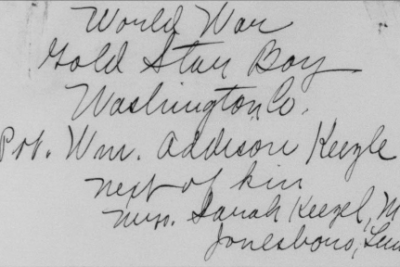 World War
Gold Star Boy
Washington Co.
Pvt. Wm. Addison Keezle
next of kin
Mrs. Sarah Keezel, M
Jonesboro, Tenn